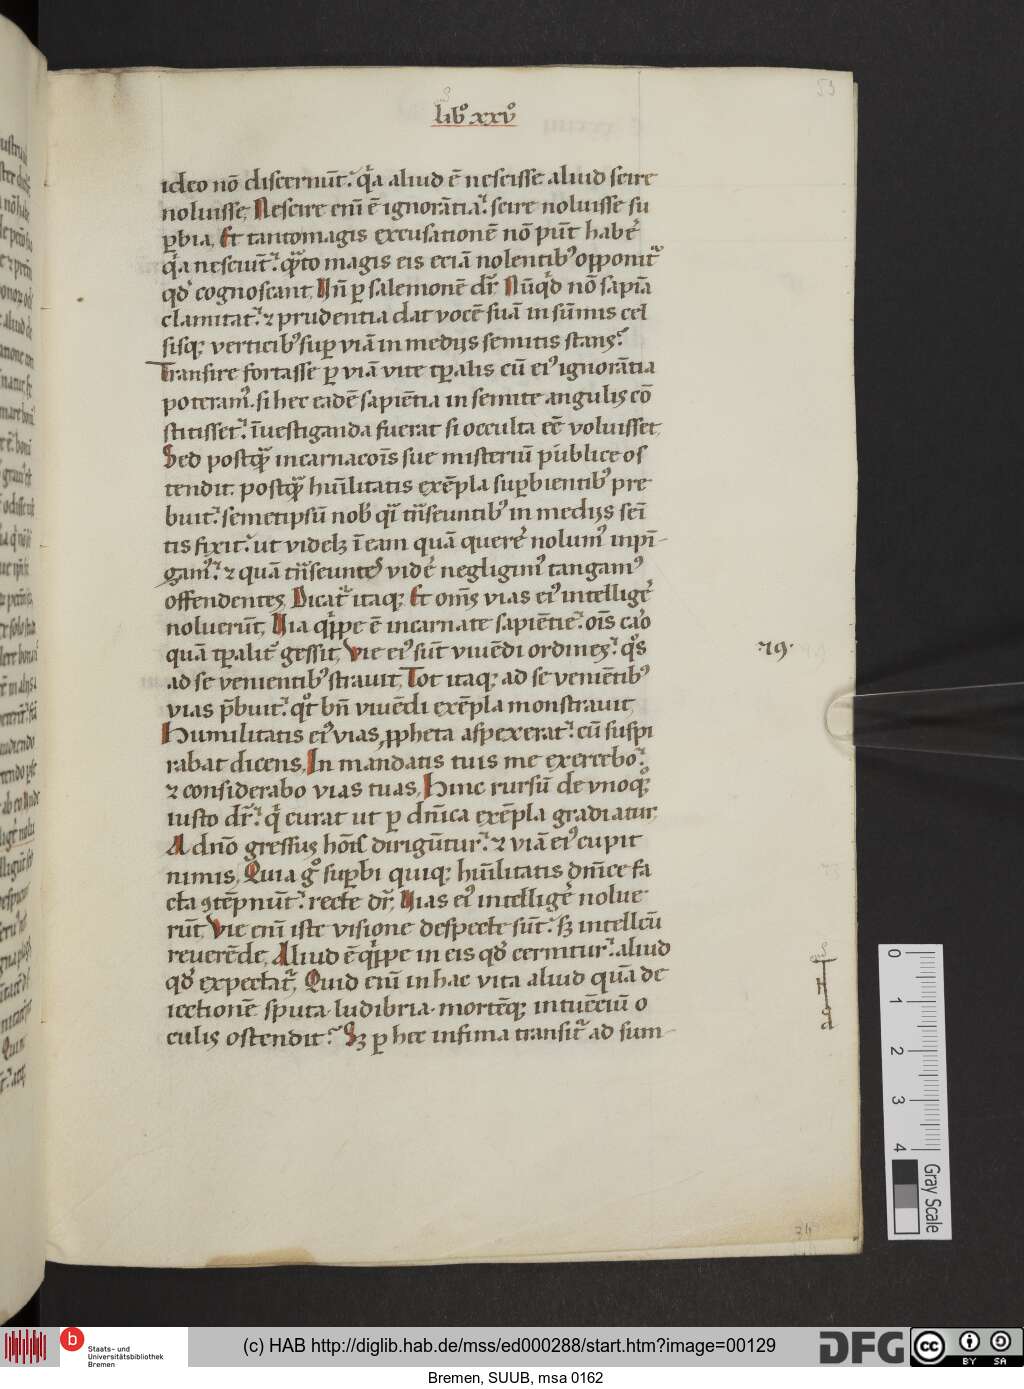 53
libꝰ xxvꝰ
ideo nō discernūt. qͥa aliud ē nescisse aliud scire
noluisse. Nescire enī ē ignorātia. scire noluisse su
ꝑbia. Et tantomagis excusationē nō pn̄t habẽ
qͥa nesciūt. qͣto magis eis eciā nolentibꝰ opponitᷣ
qd̓ cognoscant. Hn̄ ꝑ salemonē dr̄. Nūqͥd nō sapīa
clamitat. ⁊ prudentia dat vocē suā in sūmis cel
sisqꝫ verticibꝰ suꝑ viā in medijs semitis stans?
Transire fortasse ꝑ viā vite tꝑalis cū eiꝰ ignorātia
poteramꝰ. si hec eadē sapiētia in semite angulis cō
stitisset. īuestiganda fuerat si occulta eē voluisset.
Sed postqͣ incarnacoīs sue misteriū publice os
tendit. postqͣ hūilitatis exēpla suꝑbientibꝰ pre
buit. semetipsū nob̓ qͣi trn̄seuntibꝰ in medijs sem̄
tis fixit. ut videlꝫ ī eam quā querẽ nolumꝰ inpī-
gamꝰ. ⁊ quā trn̄seuntes videẽ negligimꝰ tangamꝰ
offendentes. Dicatᷣ itaqꝫ Et om̄s vias eiꝰ intelligẽ
noluerūt. Via qͥppe ē incarnate sapiētie. oīs cᷓo
quā tꝑalitᷣ gessit. Vie eiꝰ sūt viuēdi ordines. qͦs
ad se venientibꝰ strauit. Tot itaqꝫ ad se veniētibꝰ
vias p̄buit. qͦt bn̄ viuēdi exēpla monstrauit
Humilitatis eiꝰ vias ꝓpheta aspexerat. cū suspi
rabat dicens. In mandatis tuis me exercebo.
⁊ considerabo vias tuas. Hinc rursū de vnoqͦqꝫ
iusto dr̄. qͥ curat ut ꝑ dn̄ica exēpla gradiatur
A dn̄o gressus hoīs dirigūtur. ⁊ viā eiꝰ cupit
nimis. Quia gͦ suꝑbi quiqꝫ hūilitatis dn̄ice fa
cta ꝯtēpnūt. recte dr̄. Vias eiꝰ intelligẽ nolue
rūt. Vie enī iste visione despecte sūt. sꝫ intellcū
reuerēde. Aliud ē qͥppe in eis qd̓ cernitur. aliud
qd̓ expectatᷣ. Quid enī in hac vita aliud quā de
iectionē sputa. ludibria. mortēqꝫ intuēciū o
culis ostendit. Sꝫ ꝑ hec infima transitᷣ ad sum-
29.
0
1
2
3
4
Gray Scale
b
Staats- und
Universitätsbibliothek
Bremen
(c) HAB http://diglib.hab.de/mss/ed000288/start.htm?image=00129
DFG
cc
BY SA
Bremen, SUUB, msa 0162